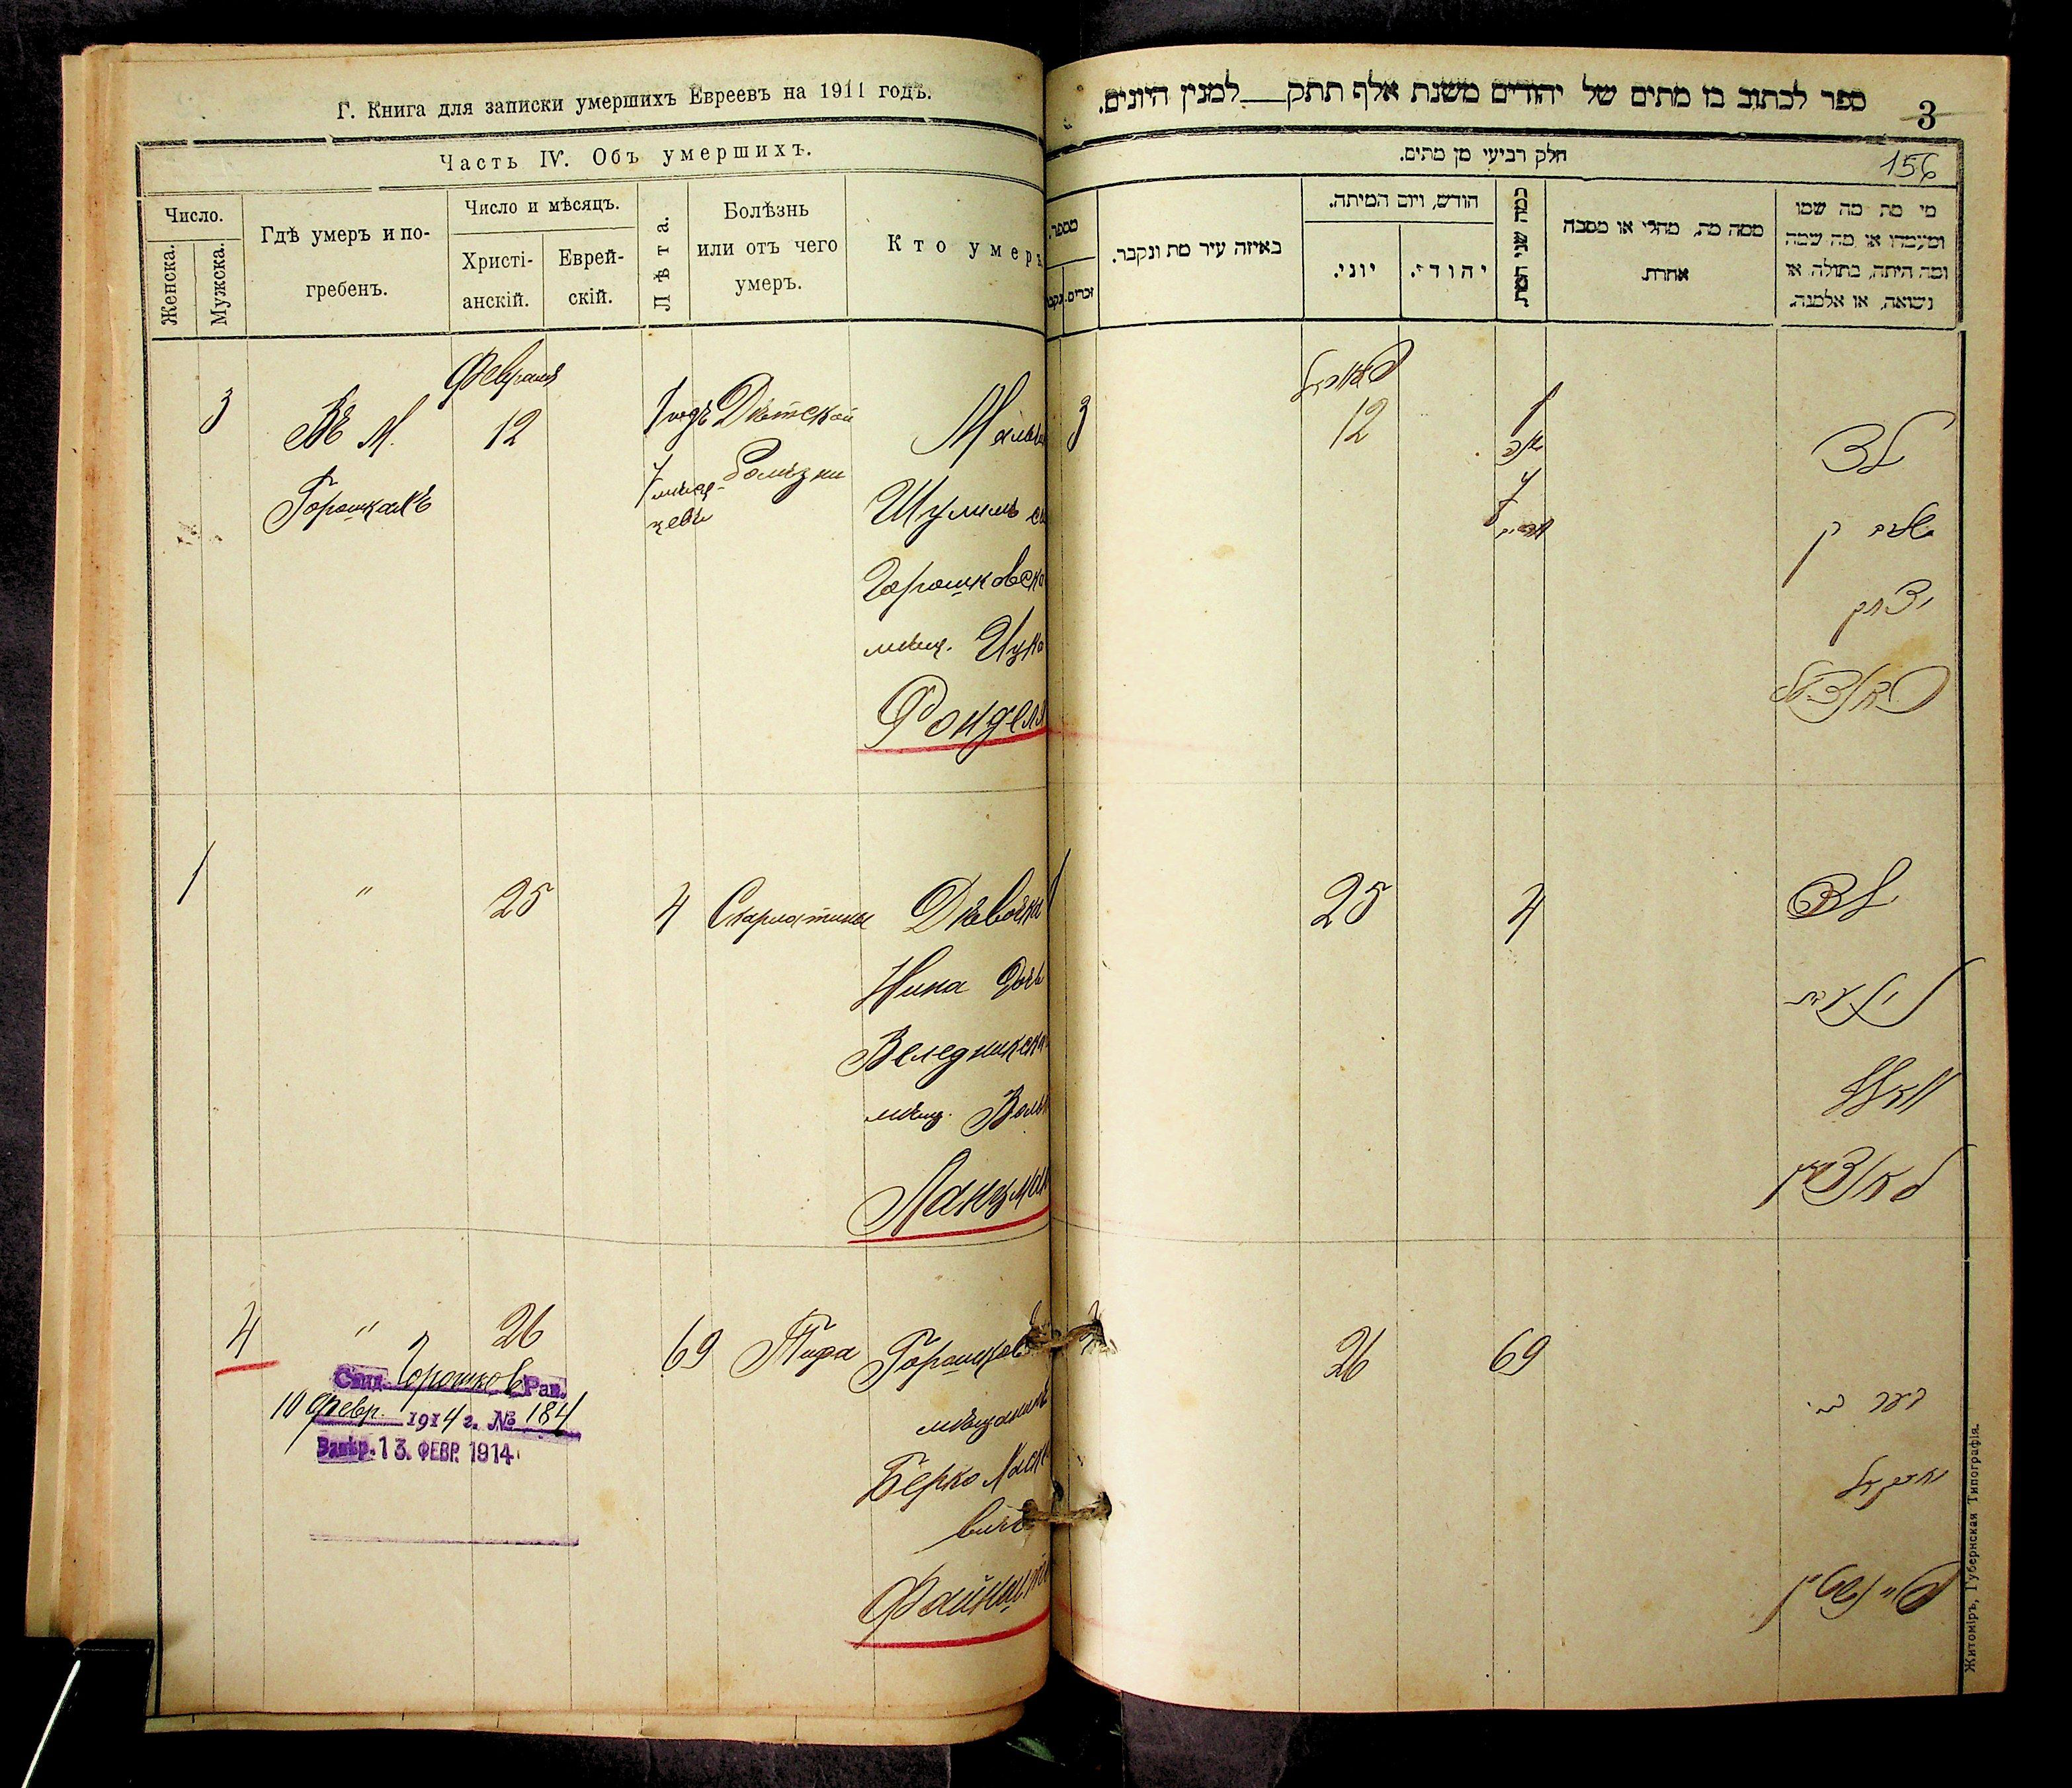 Г. Книга для записки умершихъ Евреевъ на 1911 годъ.
Часть IV. Объ умершихъ.
Число.
Женска.
Мужска.
Гдѣ умеръ и по-
гребенъ.
Число и мѣсяцъ.
Христі-
анскій.
Еврей-
скій.
Лѣта.
Болѣзнь
или отъ чего
умеръ.
Кто умеръ
3
Въ М.
Горошкахъ
Февраля
12
1 годъ
7 мѣся-
цевъ
Дѣтской
болѣзни
Мальч
Шулимъ с
Горошковск
мѣщ. Ицко
Фондель
1
"
25
4
Скарлатины
Дѣвочка
Нина дочь
Веледникск
мѣщ. Воль
Ланцман
4
"
26
69
Тифа
Горошков
мѣщанинъ
Берко
вичъ
Файншт
Свид. Горошков Рав.
10 Февр. 1914 г. № 184
Завѣр. 13. ФЕВР. 1914
ספר לכתוב בו מתים של יהודים משנת אלף תתק__למנין היונים.
3
156
חלק רביעי מן מתים.
מספר.
זכרים.
באיזה עיר מת ונקבר.
הודש, ויום המיתה.
יוני.
יהודי.
כמה שני המת.
ממה מת, מחלי או מסבה
אחרת.
מי מת מה שמו
ומעמדו או מה שמה
ומה היתה, בתולה או
נשואה, או אלמנה.
3
12
1
7
ילד
יצחק
1
25
4
ילדה
וואלף
לאנצמאן
26
69
פיינשטיין
Житомiръ, Губернская Типографiя.